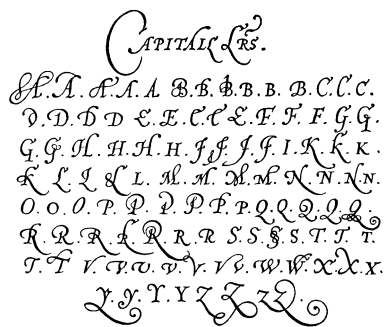 CAPITALL LRS.
A.A.A.A.A B.B.B.B.B.B.C.C.C.
D.D.D.D E.E.E.E.E.F.F.F.G.G.
G.G.H.H.H.H.J.J.J.I.K.K.K.
K L.L.L.L.M.M.M.M.N.N.N.
O.O.O.P.P.P.P.P.P.Q.Q.Q.Q.
R.R.R.R.R.R.S.S.S.S.T.T.T.
T.T V.V.V.V.V.V.V.W.W.X.X.X
Y.Y.Y.Y Z Z zZ.